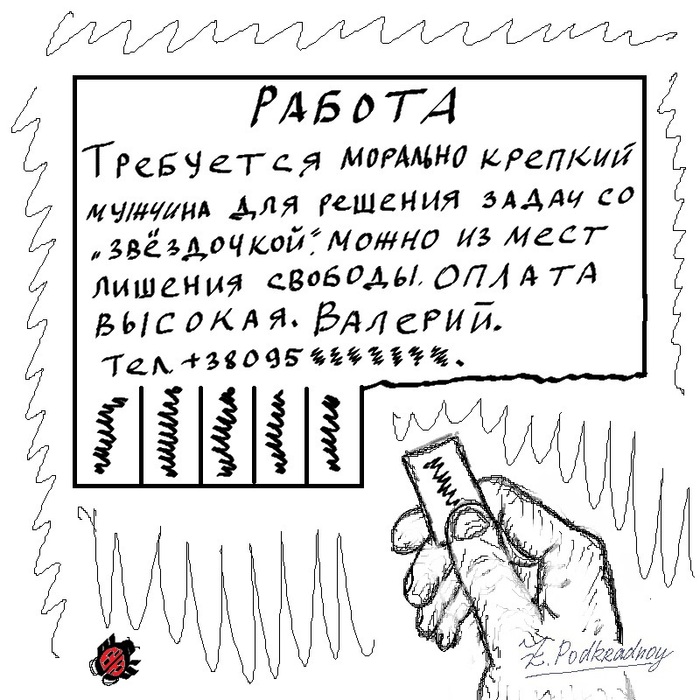 РАБОТА
ТРЕБУЕТСЯ МОРАЛЬНО КРЕПКИЙ
МУЖЧИНА ДЛЯ РЕШЕНИЯ ЗАДАЧ СО
„ЗВЁЗДОЧКОЙ“. МОЖНО ИЗ МЕСТ
ЛИШЕНИЯ СВОБОДЫ. ОПЛАТА
ВЫСОКАЯ. ВАЛЕРИЙ.
Тел +38095
Z. Podkradnoy